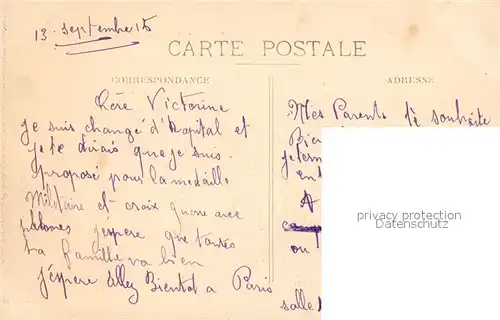 13 septembre 15
CARTE POSTALE
CORRESPONDANCE
ADRESSE
Chère Victorine
je suis changé d'hopital et
je te dirais que je suis
proposé pour la medaille
Militaire et croix guerre avec
palmes j'espère que toutes
ta famille va bien
j'éspere allez Bientot a Paris
Mes Parents te souhaite
Bien
je term
en
A
ou
salle
privacy protection
Datenschutz